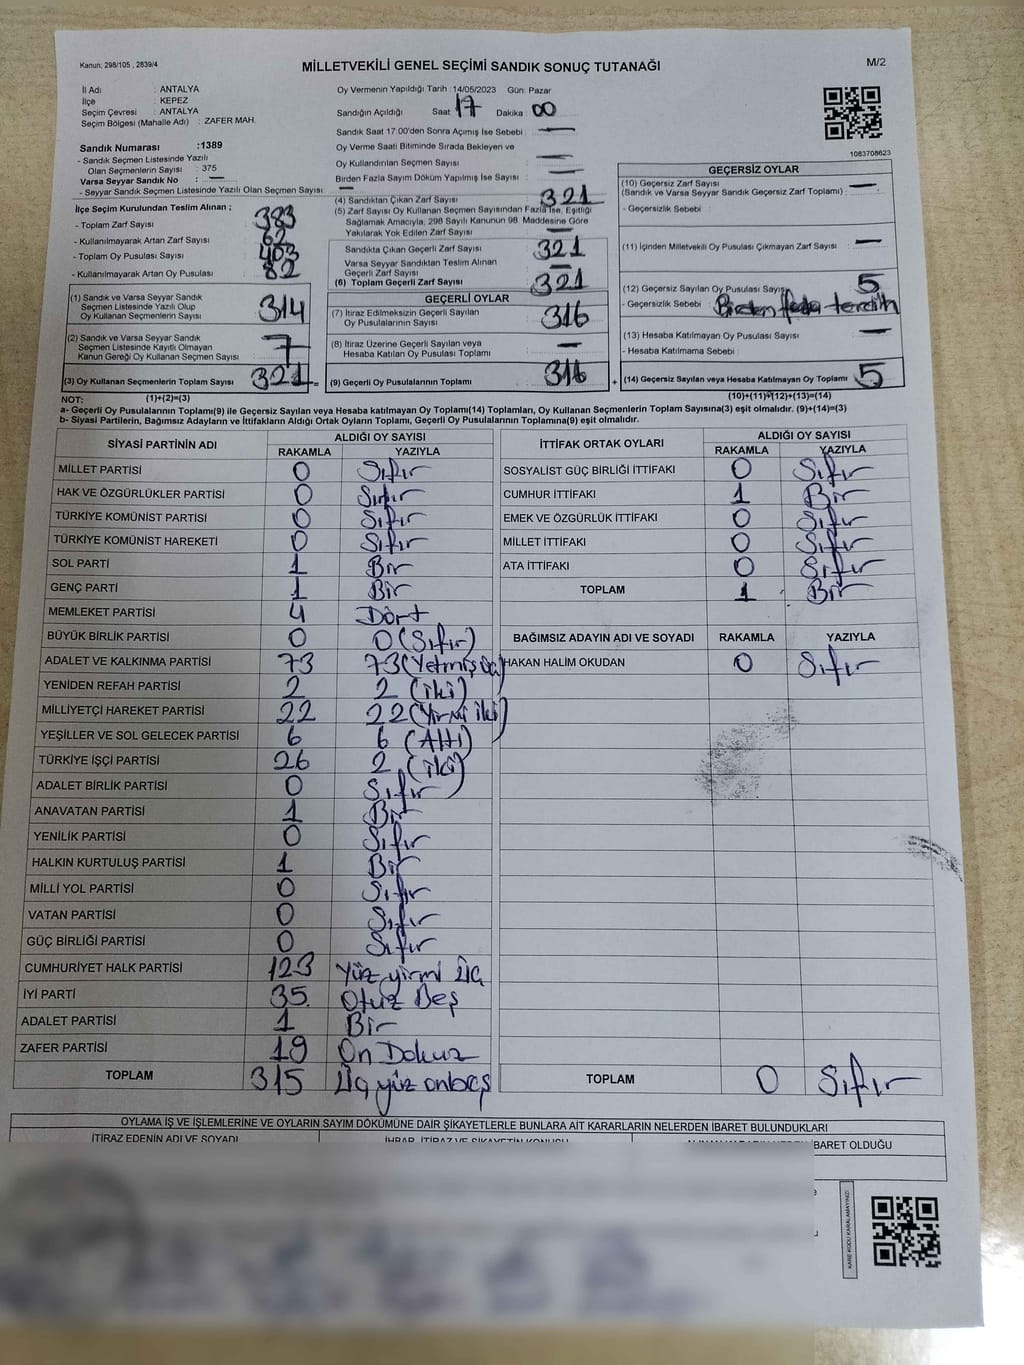 Kanun: 298/105 , 2839/4
MİLLETVEKİLİ GENEL SEÇİMİ SANDIK SONUÇ TUTANAĞI
M/2
İl Adı : ANTALYA
İlçe : KEPEZ
Seçim Çevresi : ANTALYA
Seçim Bölgesi (Mahalle Adı) : ZAFER MAH.
Sandık Numarası :1389
- Sandık Seçmen Listesinde Yazılı
Olan Seçmenlerin Sayısı : 375
Varsa Seyyar Sandık No : —
- Seyyar Sandık Seçmen Listesinde Yazılı Olan Seçmen Sayısı: —
Oy Vermenin Yapıldığı Tarih :14/05/2023 Gün: Pazar
Sandığın Açıldığı Saat 17 Dakika 00
Sandık Saat 17:00'den Sonra Açımış İse Sebebi : —
Oy Verme Saati Bitiminde Sırada Bekleyen ve
Oy Kullandırılan Seçmen Sayısı : —
Birden Fazla Sayım Döküm Yapılmış İse Sayısı : —
1083708623
İlçe Seçim Kurulundan Teslim Alınan ;
- Toplam Zarf Sayısı : 383
- Kullanılmayarak Artan Zarf Sayısı : 62
- Toplam Oy Pusulası Sayısı : 403
- Kullanılmayarak Artan Oy Pusulası : 82
(1) Sandık ve Varsa Seyyar Sandık
Seçmen Listesinde Yazılı Olup
Oy Kullanan Seçmenlerin Sayısı : 314
(2) Sandık ve Varsa Seyyar Sandık
Seçmen Listesinde Kayıtlı Olmayan
Kanun Gereği Oy Kullanan Seçmen Sayısı : 7
(3) Oy Kullanan Seçmenlerin Toplam Sayısı : 321 =
(4) Sandıktan Çıkan Zarf Sayısı : 321
(5) Zarf Sayısı Oy Kullanan Seçmen Sayısından Fazla İse, Eşitliği
Sağlamak Amacıyla, 298 Sayılı Kanunun 98. Maddesine Göre
Yakılarak Yok Edilen Zarf Sayısı : —
Sandıkta Çıkan Geçerli Zarf Sayısı : 321
Varsa Seyyar Sandıktan Teslim Alınan
Geçerli Zarf Sayısı : —
(6) Toplam Geçerli Zarf Sayısı : 321
GEÇERLİ OYLAR
(7) İtiraz Edilmeksizin Geçerli Sayılan
Oy Pusulalarının Sayısı : 316
(8) İtiraz Üzerine Geçerli Sayılan veya
Hesaba Katılan Oy Pusulası Toplamı : —
(9) Geçerli Oy Pusulalarının Toplamı : 316 +
GEÇERSİZ OYLAR
(10) Geçersiz Zarf Sayısı
(Sandık ve Varsa Seyyar Sandık Geçersiz Zarf Toplamı) : —
- Geçersizlik Sebebi :
(11) İçinden Milletvekili Oy Pusulası Çıkmayan Zarf Sayısı : —
(12) Geçersiz Sayılan Oy Pusulası Sayısı : 5
- Geçersizlik Sebebi : Birden fazla tercih
(13) Hesaba Katılmayan Oy Pusulası Sayısı : —
- Hesaba Katılmama Sebebi :
(14) Geçersiz Sayılan veya Hesaba Katılmayan Oy Toplamı : 5
NOT: (1)+(2)=(3) (10)+(11)+(12)+(13)=(14)
a- Geçerli Oy Pusulalarının Toplamı(9) ile Geçersiz Sayılan veya Hesaba katılmayan Oy Toplamı(14) Toplamları, Oy Kullanan Seçmenlerin Toplam Sayısına(3) eşit olmalıdır. (9)+(14)=(3)
b- Siyasi Partilerin, Bağımsız Adayların ve İttifakların Aldığı Ortak Oyların Toplamı, Geçerli Oy Pusulalarının Toplamına(9) eşit olmalıdır.
SİYASİ PARTİNİN ADI
ALDIĞI OY SAYISI
RAKAMLA YAZIYLA
MİLLET PARTİSİ 0 Sıfır
HAK VE ÖZGÜRLÜKLER PARTİSİ 0 Sıfır
TÜRKİYE KOMÜNİST PARTİSİ 0 Sıfır
TÜRKİYE KOMÜNİST HAREKETİ 0 Sıfır
SOL PARTİ 1 Bir
GENÇ PARTİ 1 Bir
MEMLEKET PARTİSİ 4 Dört
BÜYÜK BİRLİK PARTİSİ 0 0 (Sıfır)
ADALET VE KALKINMA PARTİSİ 73 73 (Yetmiş üç)
YENİDEN REFAH PARTİSİ 2 2 (iki)
MİLLİYETÇİ HAREKET PARTİSİ 22 22 (Yirmi iki)
YEŞİLLER VE SOL GELECEK PARTİSİ 6 6 (Altı)
TÜRKİYE İŞÇİ PARTİSİ 26 2 (iki)
ADALET BİRLİK PARTİSİ 0 Sıfır
ANAVATAN PARTİSİ 1 Bir
YENİLİK PARTİSİ 0 Sıfır
HALKIN KURTULUŞ PARTİSİ 1 Bir
MİLLİ YOL PARTİSİ 0 Sıfır
VATAN PARTİSİ 0 Sıfır
GÜÇ BİRLİĞİ PARTİSİ 0 Sıfır
CUMHURİYET HALK PARTİSİ 123 Yüz yirmi üç
İYİ PARTİ 35 Otuz Beş
ADALET PARTİSİ 1 Bir
ZAFER PARTİSİ 19 On Dokuz
TOPLAM 315 Üç yüz onbeş
İTTİFAK ORTAK OYLARI
ALDIĞI OY SAYISI
RAKAMLA YAZIYLA
SOSYALİST GÜÇ BİRLİĞİ İTTİFAKI 0 Sıfır
CUMHUR İTTİFAKI 1 Bir
EMEK VE ÖZGÜRLÜK İTTİFAKI 0 Sıfır
MİLLET İTTİFAKI 0 Sıfır
ATA İTTİFAKI 0 Sıfır
TOPLAM 1 Bir
BAĞIMSIZ ADAYIN ADI VE SOYADI RAKAMLA YAZIYLA
HAKAN HALİM OKUDAN 0 Sıfır
TOPLAM 0 Sıfır
OYLAMA İŞ VE İŞLEMLERİNE VE OYLARIN SAYIM DÖKÜMÜNE DAİR ŞİKAYETLERLE BUNLARA AİT KARARLARIN NELERDEN İBARET BULUNDUKLARI
İTİRAZ EDENİN ADI VE SOYADI
İHBAR, İTİRAZ VE ŞİKAYETİN KONUSU
İBARET OLDUĞU
KARE KODU KARALAMAYINIZ!